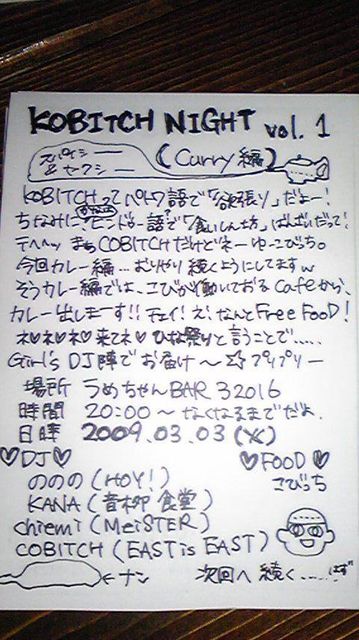 KOBITCH NIGHT vol. 1
スパイシー
&セクシー
(Curry編)
KOBITCHってペルトワ語で「欲張り」だよー!
ちなみにヒンドゥー語で「食いしん坊」
テヘヘッ まぁCOBITCHだけどネーゆーこびっち。
今回カレー編…むりやり続くようにしてますw
そうカレー編では、こびが働いておるCafeから、
カレー出しまーす!! チェイ! え!なんとFree FooD!
ネ♥ネ♥ネ♥来てネ♥ひな祭りと言うことで.....
Girl's DJ陣でお届け〜☆プリプリー
場所 うめちゃんBAR 32016
時間 20:00〜なくなるまでだよ.
日時 2009.03.03(火)
♡DJ♡
♡FOOD♡
ののの(HOY!)
こびっち
KANA(音柳食堂)
chiemi(MeiSTER)
COBITCH(EAST is EAST)
←ナン
次回へ続く……はず